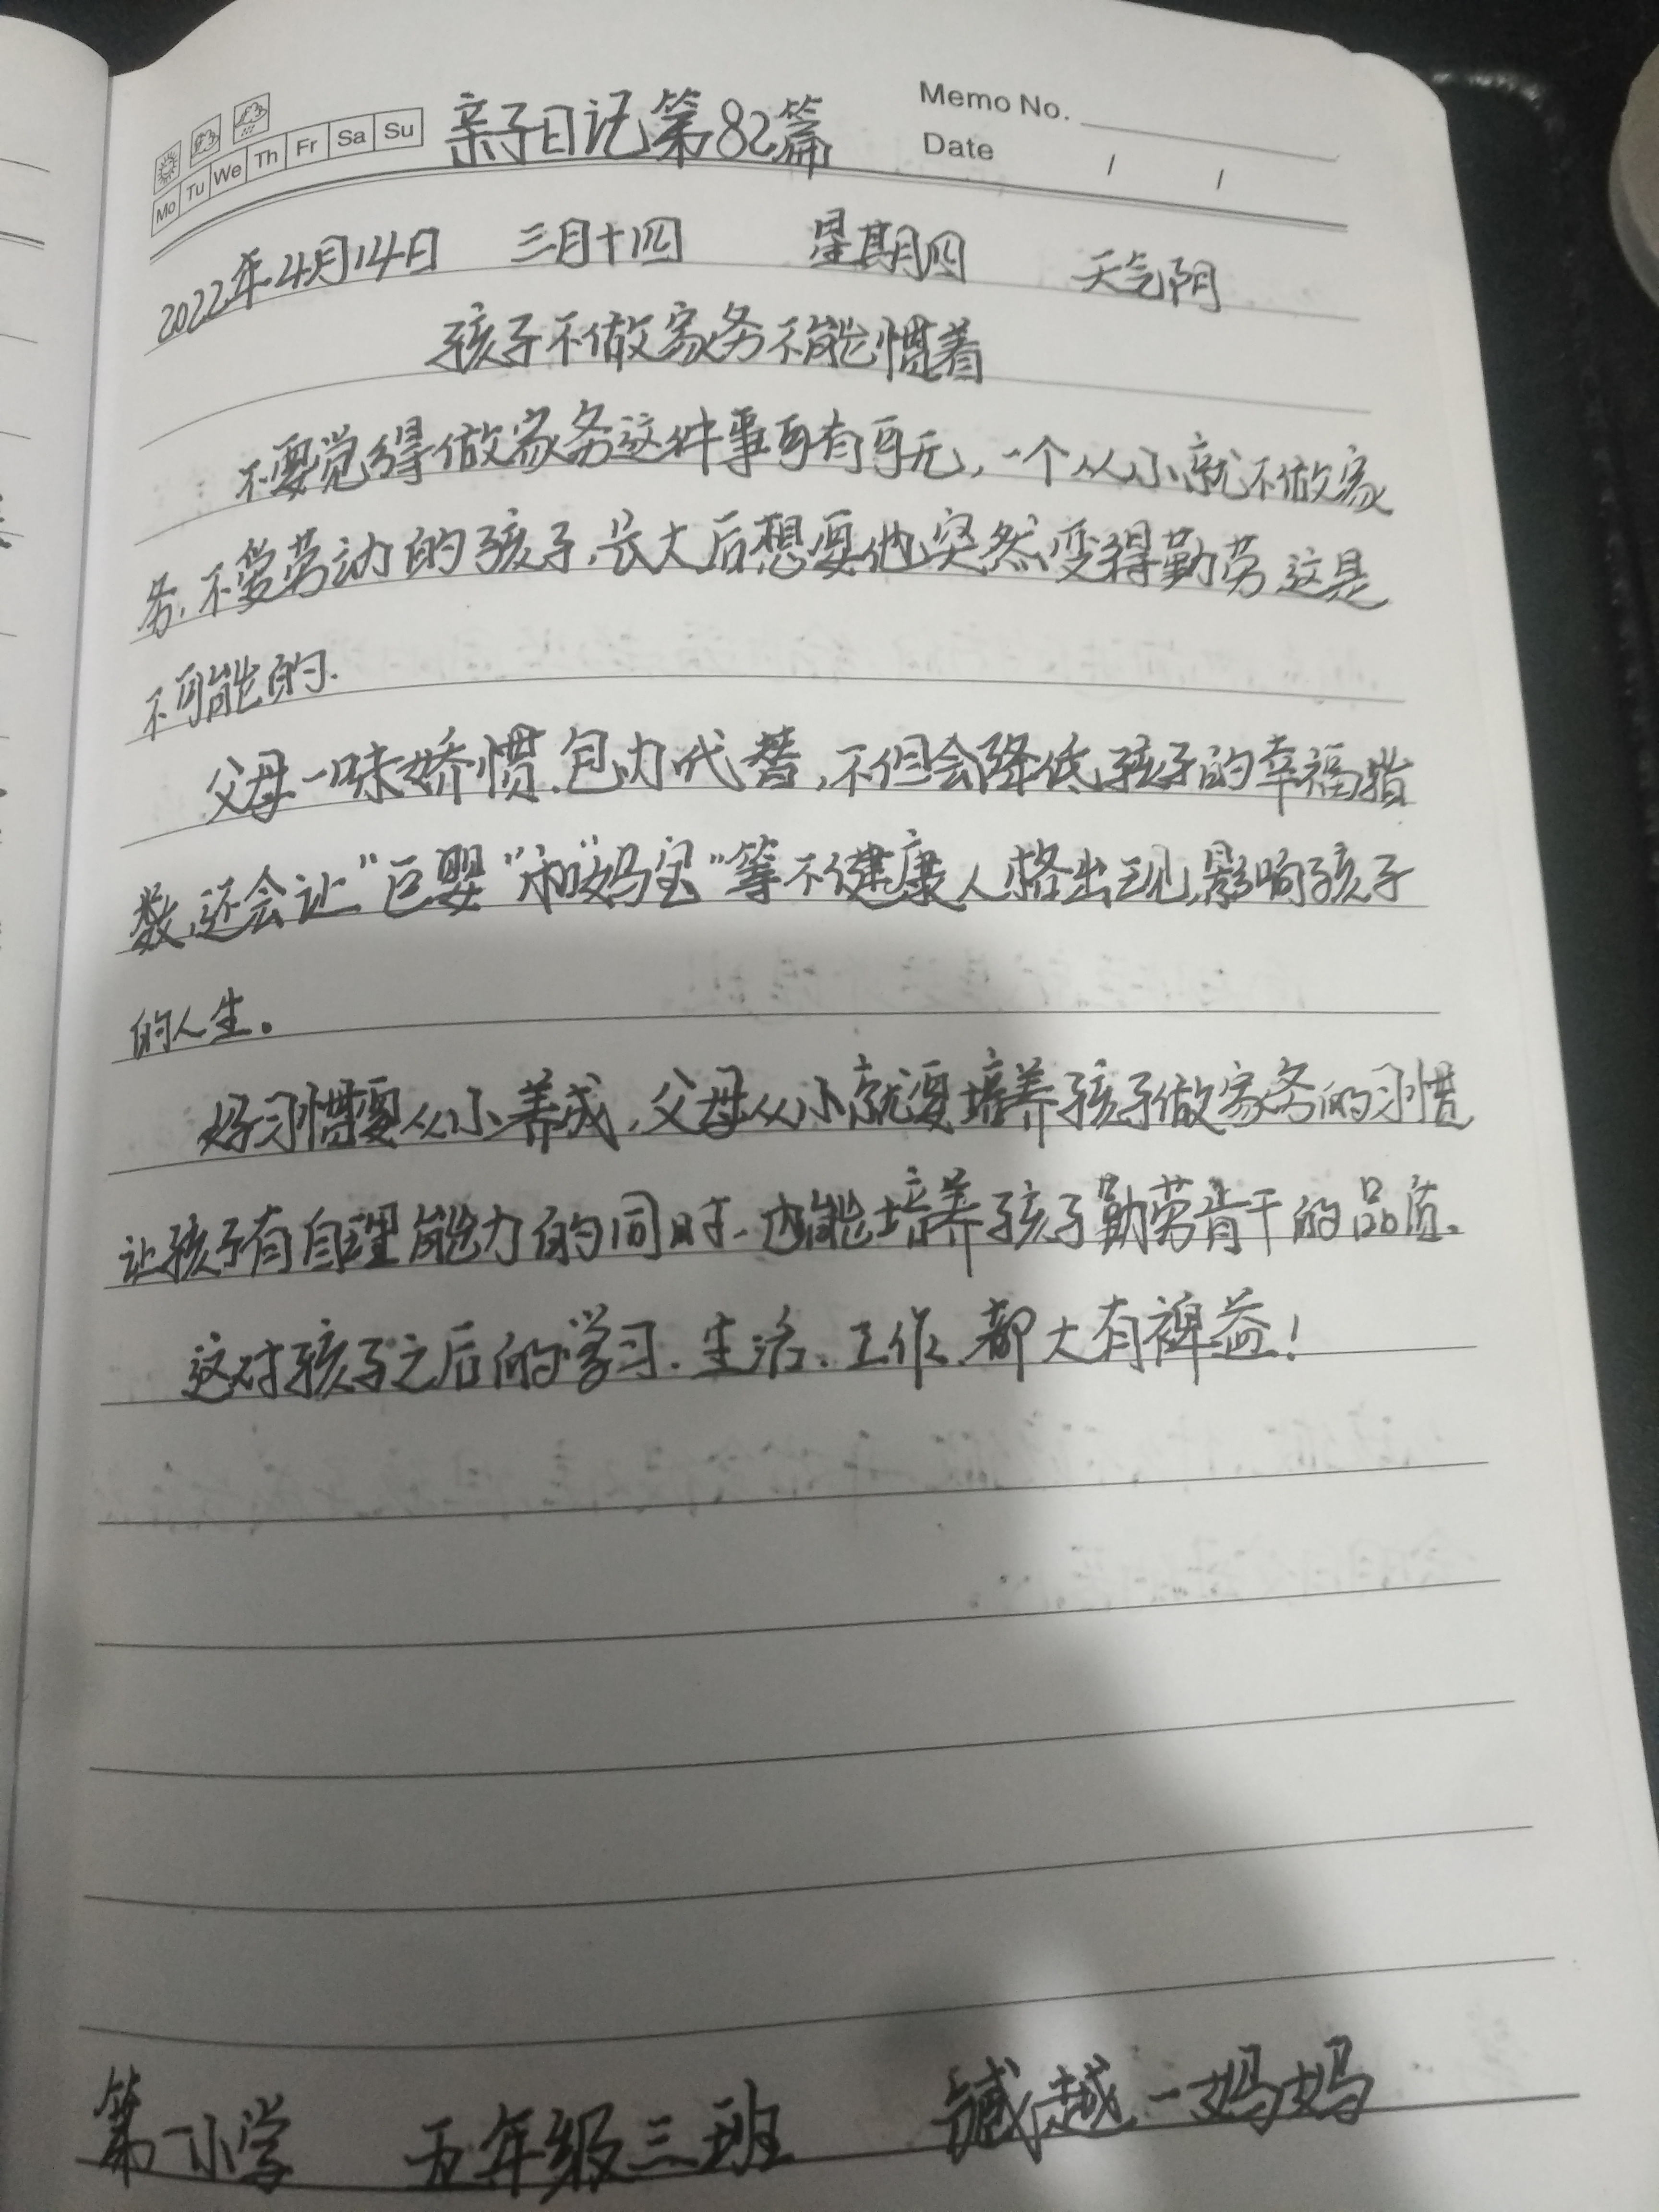 亲子日记第82篇
Memo No.
Mo Tu We Th Fr Sa Su
Date / /
2022年4月14日 三月十四 星期四 天气阴
孩子不做家务不能惯着
不要觉得做家务这件事可有可无，一个从小就不做家
务,不爱劳动的孩子,长大后想要他突然变得勤劳这是
不可能的.
父母一味娇惯.包办代替,不但会降低孩子的幸福指
数,还会让"巨婴"和"妈宝"等不健康人格出现,影响孩子
的人生。
好习惯要从小养成,父母从小就要培养孩子做家务的习惯,
让孩子有自理能力的同时,也能培养孩子勤劳肯干的品质。
这对孩子之后的学习.生活、工作、都大有裨益!
第一小学 五年级三班 越一妈妈